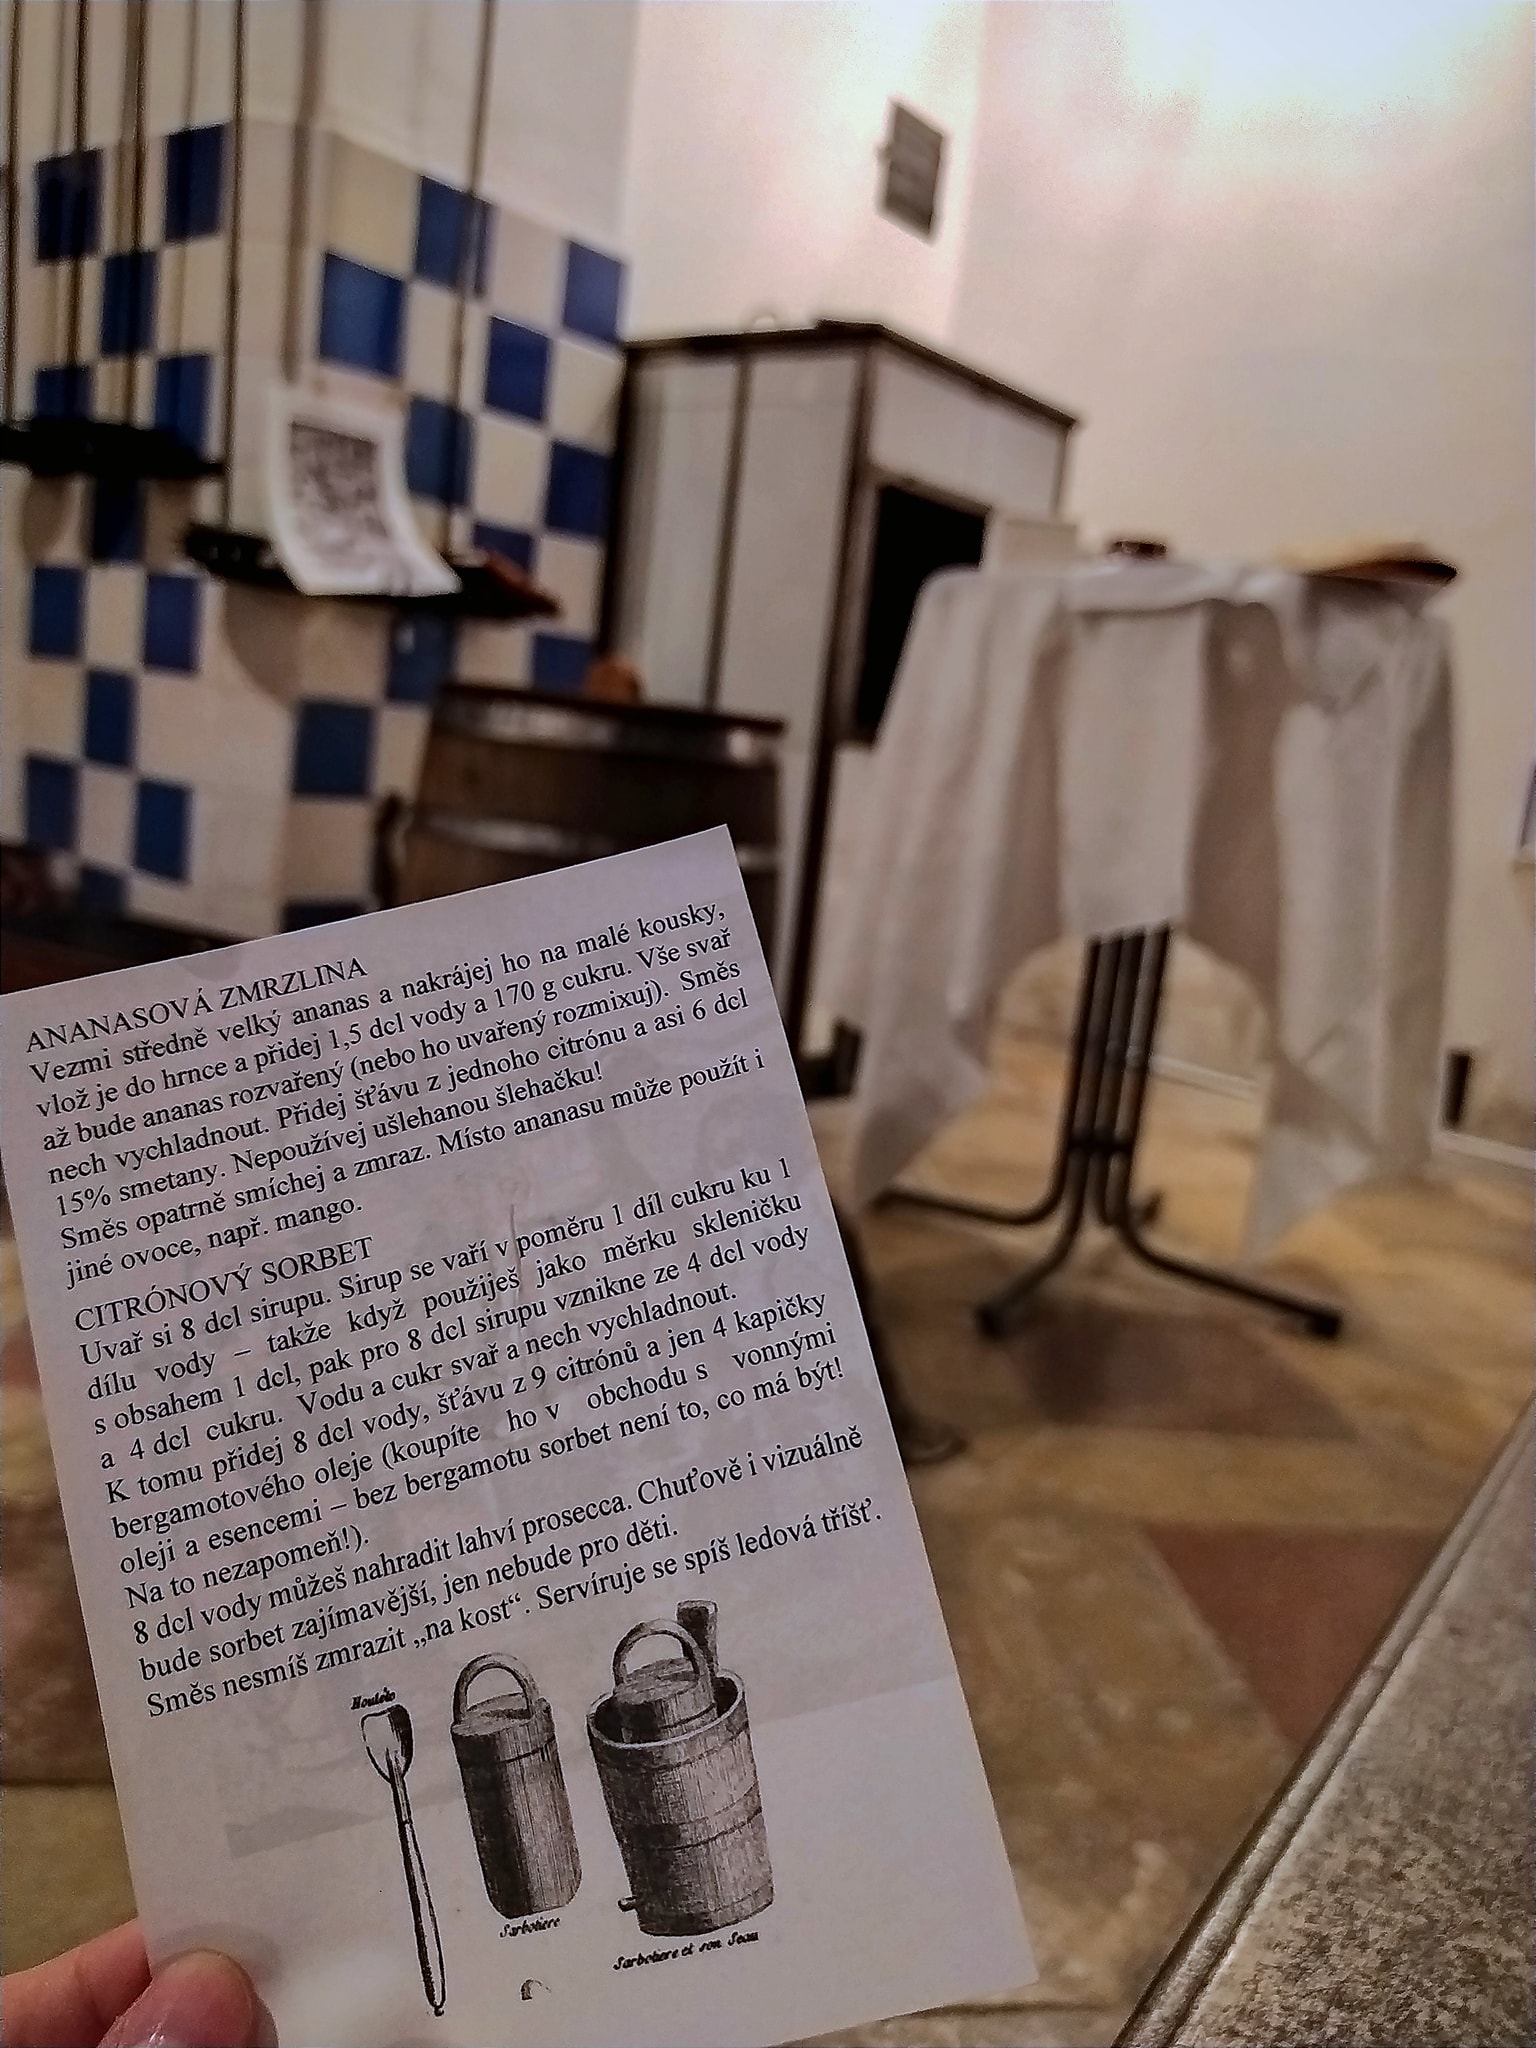 ANANASOVÁ ZMRZLINA
Vezmi středně velký ananas a nakrájej ho na malé kousky,
vlož je do hrnce a přidej 1,5 dcl vody a 170 g cukru. Vše svař
až bude ananas rozvařený (nebo ho uvařený rozmixuj). Směs
nech vychladnout. Přidej šťávu z jednoho citrónu a asi 6 dcl
15% smetany. Nepoužívej ušlehanou šlehačku!
Směs opatrně smíchej a zmraz. Místo ananasu může použít i
jiné ovoce, např. mango.
CITRÓNOVÝ SORBET
Uvař si 8 dcl sirupu. Sirup se vaří v poměru 1 díl cukru ku 1
dílu vody – takže když použiješ jako měrku skleničku
s obsahem 1 dcl, pak pro 8 dcl sirupu vznikne ze 4 dcl vody
a 4 dcl cukru. Vodu a cukr svař a nech vychladnout.
K tomu přidej 8 dcl vody, šťávu z 9 citrónů a jen 4 kapičky
bergamotového oleje (koupíte ho v obchodu s vonnými
oleji a esencemi – bez bergamotu sorbet není to, co má být!
Na to nezapomeň!).
8 dcl vody můžeš nahradit lahví prosecca. Chuťově i vizuálně
bude sorbet zajímavější, jen nebude pro děti.
Směs nesmíš zmrazit „na kost“. Servíruje se spíš ledová tříšť.
Houlette
Sarbotiere
Sarbotiere et son Seau